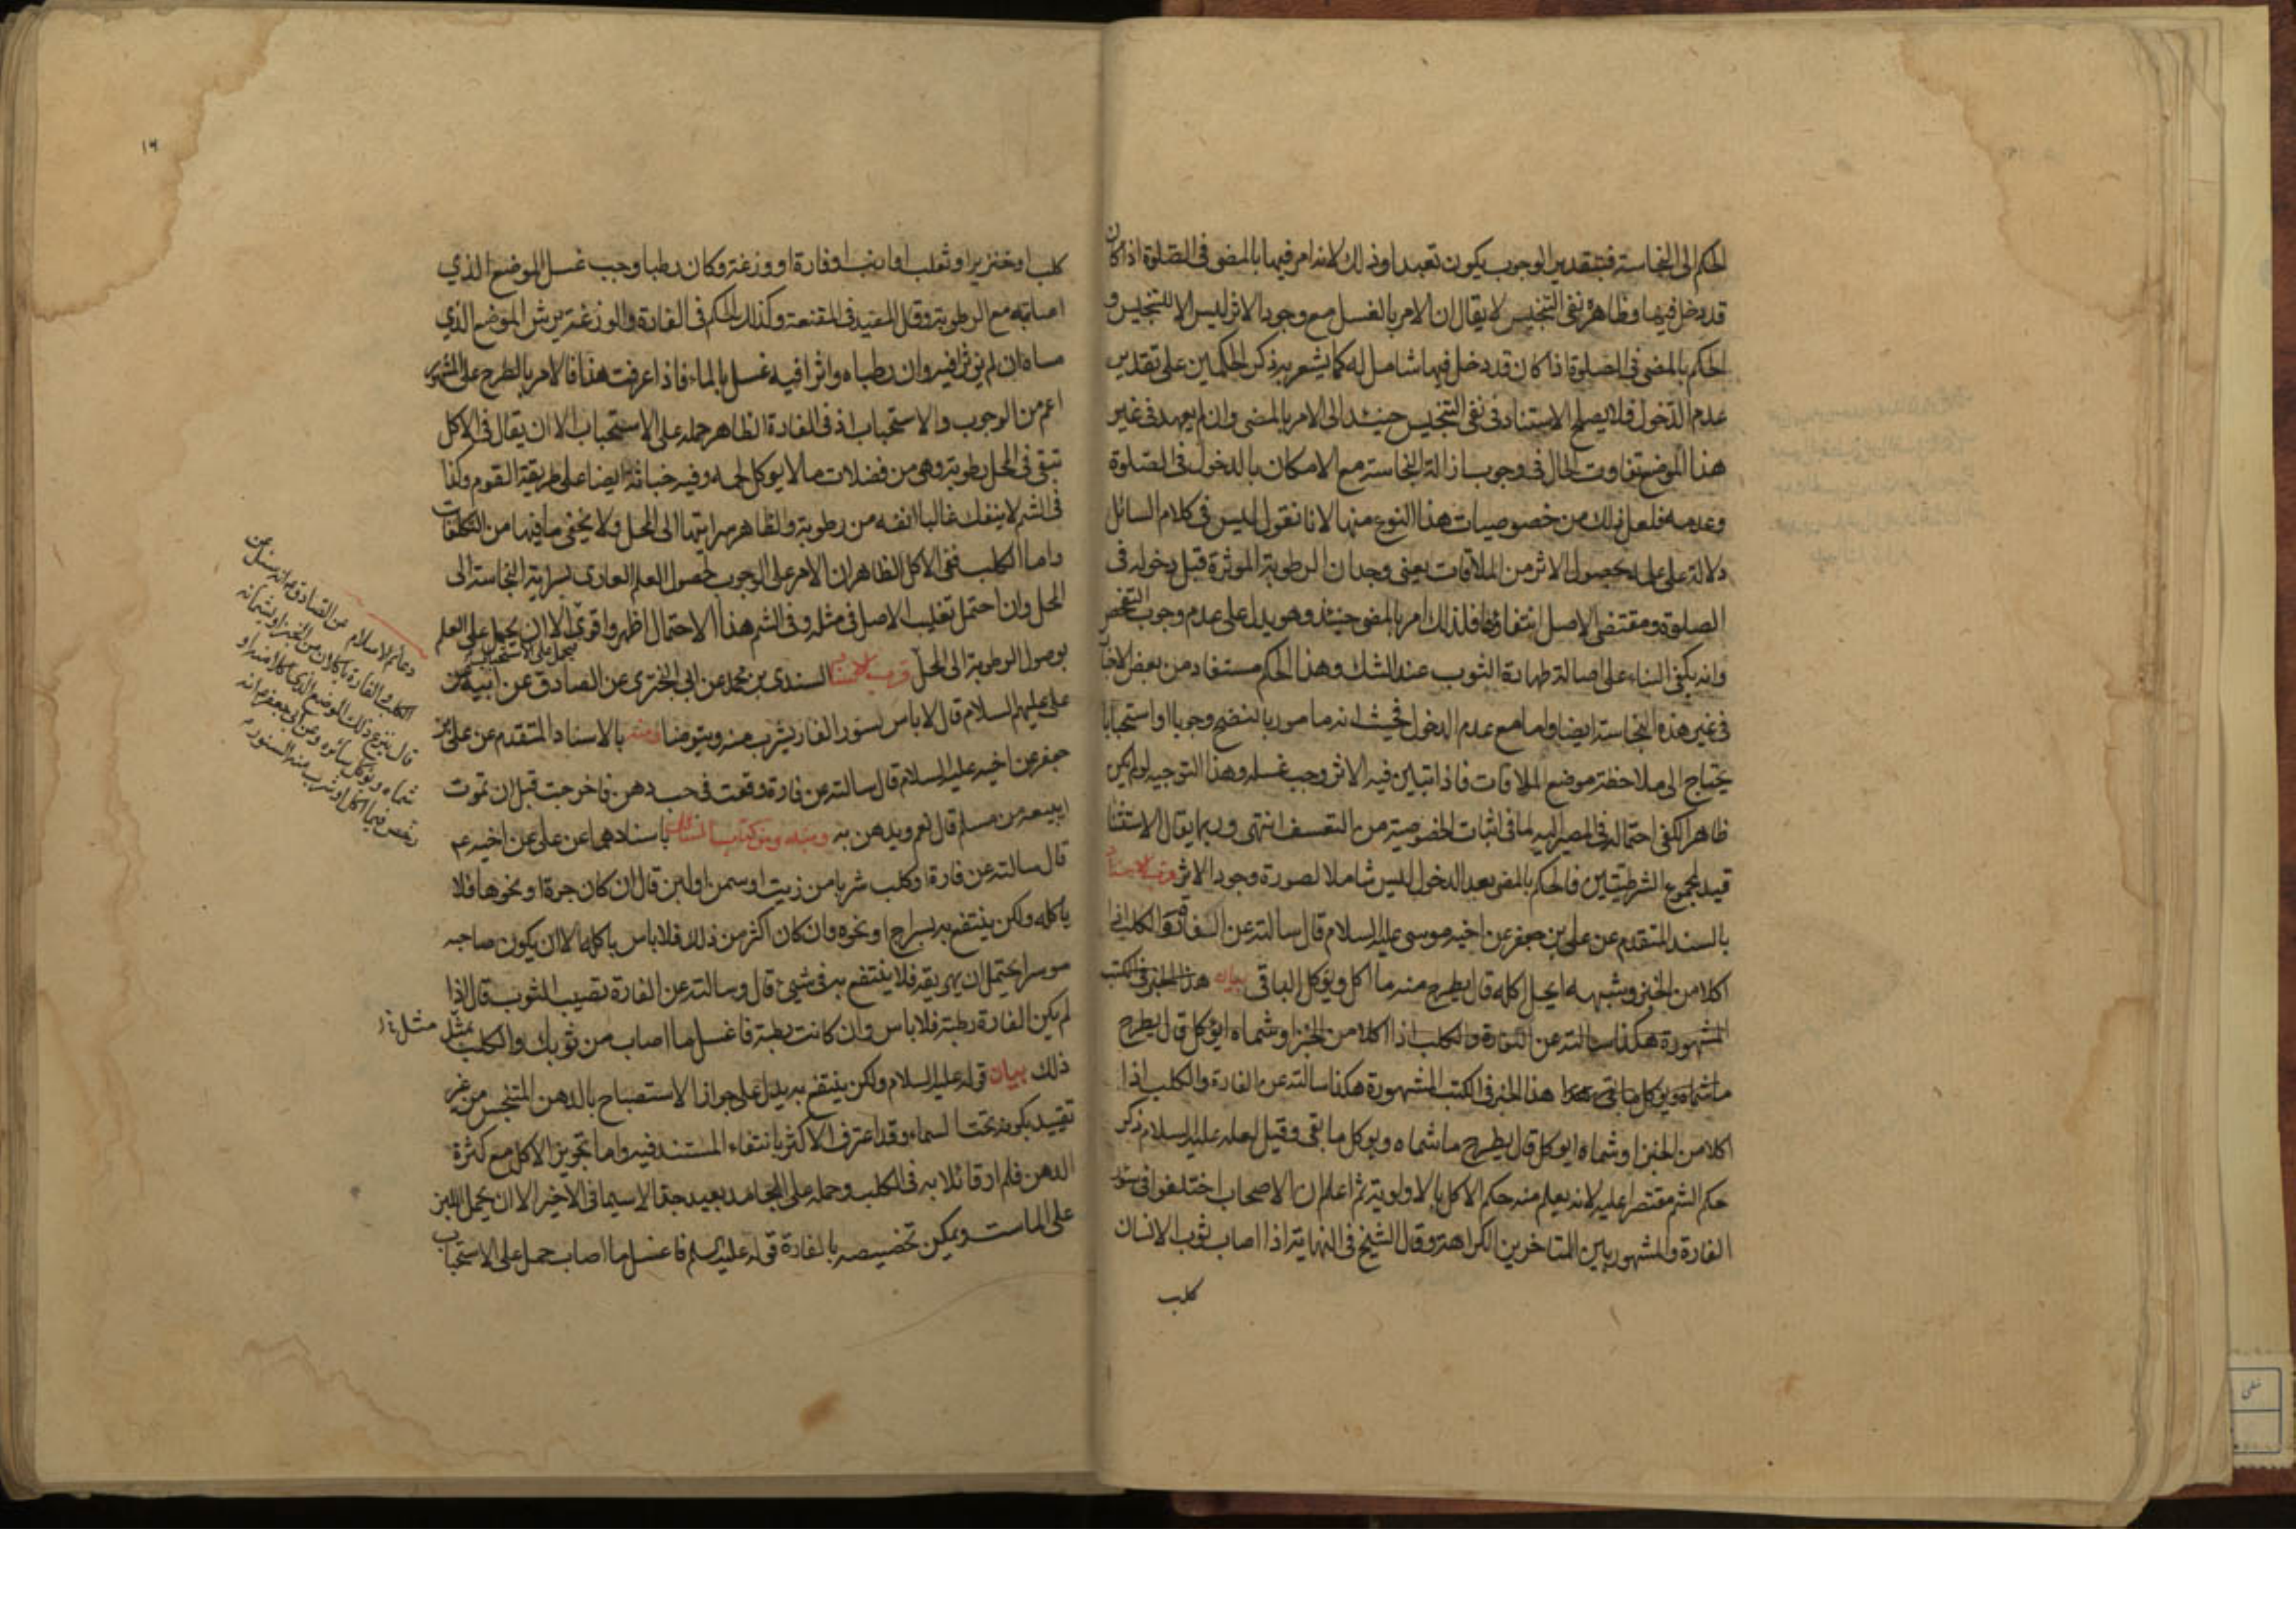 الحكم الى النجاسة فبتقدير الوجوب يكون تعبدا وذلك لانه امر فيها بالمضى فى الصلوة اذا كان
قد دخل فيها وظاهره نفى التنجيس لا يقال ان الامر بالغسل مع وجود الاثر ليس الا للتنجيس و
الحكم بالمضى فى الصلوة اذا كان قد دخل فيها شامل له كما يشعر به ذكر الحكمين على تقدير
عدم الدخول فلا يصلح الاستناد فى نفى التنجيس حينئذ الى الامر بالمضى وان لم يعهد فى غير
هذا الموضع تفاوت الحال فى وجوب ازالة النجاسة مع الامكان بالدخول فى الصلوة
وعدمه فلعل ذلك من خصوصيات هذا النوع منها لانا نقول ليس فى كلام السائل
دلالة على علمه بحصول الاثر من الملاقات يعنى وجدان الرطوبة الموثرة قبل دخوله فى
الصلوة ومقتضى الاصل انتفاؤها فلذلك امر بالمضى حينئذ وهو يدل على عدم وجوب التفحص
وانه يكفى البناء على اصالة طهارة الثوب عند الشك وهذا الحكم مستفاد من بعض الاخبار
فى غير هذه النجاسة ايضا واما مع عدم الدخول فحيث انه مامور بالنضح وجوبا او استحبابا
يحتاج الى ملاحظة موضع الملاقات فاذا تبين فيه الاثر وجب غسله وهذا التوجيه لو لم يكن
ظاهرا لكفى احتماله فى المصير اليه لما فى اثبات الخصوصية من التعسف انتهى وربما يقال الاستثنا
قيد لمجموع الشرطيتين فالحكم بالمضى بعد الدخول ليس شاملا لصورة وجود الاثر قرب الاسناد
بالسند المتقدم عن على بن جعفر عن اخيه موسى عليه السلام قال سالته عن الفارة والكلب اذا
اكلا من الخبز وشبهه ايحل اكله قال يطرح منه ما اكل ويؤكل الباقى بيان هذا الخبر فى الكتب
المشهورة هكذا سالته عن الفارة والكلب اذا اكلا من الخبز او شماه ايوكل قال يطرح
ما شماه ويوكل ما بقى هذا الخبر فى الكتب المشهورة هكذا سالته عن الفارة والكلب اذا
اكلا من الخبز او شماه ايوكل قال يطرح ما شماه ويوكل ما بقى وقيل لعله عليه السلام ذكر
حكم الشم مقتصرا عليه لانه يعلم منه حكم الاكل بالاولوية ثم اعلم ان الاصحاب اختلفوا فى سؤر
الفارة والمشهور بين المتاخرين الكراهة وقال الشيخ فى النهاية اذا اصاب ثوب الانسان
كلب
١٦
كلب او خنزير او ثعلب او ارنب او فارة او وزغة وكان رطبا وجب غسل الموضع الذي
اصابته مع الرطوبة وقال المفيد فى المقنعة وكذلك الحكم فى الفارة والوزغة يرش الموضع الذي
مساه ان لم يؤثرا فيه وان رطباه واثرا فيه غسل بالماء فاذا عرفت هذا فالامر بالطرح على المشهور
اعم من الوجوب والاستحباب اذ فى الفارة الظاهر حمله على الاستحباب الا ان يقال فى الاكل
تبقى فى المحل رطوبة وهى من فضلات ما لا يوكل لحمه وفيه خباثة ايضا على طريقة القوم وكذا
فى الشم لا ينفك غالبا انفه من رطوبة والظاهر سرايتها الى المحل ولا يخفى ما فيها من التكلفات
واما الكلب ففى الاكل الظاهر ان الامر على الوجوب لحصول العلم العادى بسراية النجاسة الى
المحل وان احتمل تغليب الاصل فى مثله وفى الشم هذا الاحتمال اظهر واقوى الا ان يحمل على العلم
بوصول الرطوبة الى المحل قرب الاسناد السندى بن محمد عن ابى البخترى عن الصادق عن ابيه عن
على عليهم السلام قال لا باس بسؤر الفار يشرب منه ويتوضا ومنه بالاسناد المتقدم عن على بن
جعفر عن اخيه عليه السلام قال سالته عن فارة وقعت فى حب دهن فاخرجت قبل ان تموت
ايبيعه من مسلم قال نعم ويدهن به ومنه ومن كتاب المسائل باسنادهما عن على عن اخيه ع
قال سالته عن فارة او كلب شربا من زيت او سمن او لبن قال ان كان جرة او نحوها فلا
ياكله ولكن ينتفع به بسراج او نحوه وان كان اكثر من ذلك فلا باس باكله الا ان يكون صاحبه
موسرا يحتمل ان يهريقه فلا ينتفع به فى شيئ قال وسالته عن الفارة تصيب الثوب قال اذا
لم يكن الفارة رطبة فلا باس وان كانت رطبة فاغسل ما اصاب من ثوبك والكلب مثل
ذلك بيان قوله عليه السلام ولكن ينتفع به يدل على جواز الاستصباح بالدهن المتنجس من غير
تقييد بكونه تحت السماء وقد اعترف الاكثر بانتفاء المستند فيه واما تجويز الاكل مع كثرة
الدهن فلم ار قائلا به فى الكلب وحمله على الجامد بعيد جدا لا سيما فى الاخير الا ان يحمل اللبن
على الماست ويمكن تخصيصه بالفارة قوله عليه السلم فاغسل ما اصاب حمل على الاستحباب
دعائم الاسلام عن الصادق ع انه سئل عن
الكلب والفارة ياكلان من الخبز او يشمانه
قال ينزع ذلك الموضع الذى اكلا منه او
شماه ويؤكل سائره وعن ابى جعفر ع انه
رخص فيما اكل او شرب منه السنور